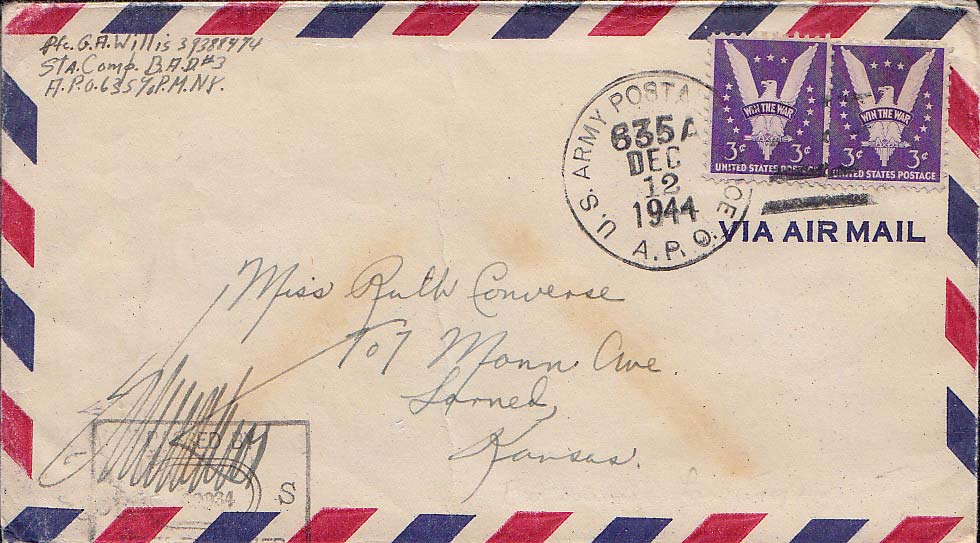 Pfc. G.A. Willis 39388974
Sta. Comp. B.A.D #3
A.P.O. 635 % P.M. N.Y.
WIN THE WAR
3¢ 3¢
UNITED STATES POSTAGE
WIN THE WAR
3¢ 3¢
UNITED STATES POSTAGE
U.S. ARMY POSTA CE
635A
DEC
12
1944
A.P.O.
VIA AIR MAIL
Miss Ruth Converse
707 Mann Ave.
Larned,
Kansas.
ED B
S